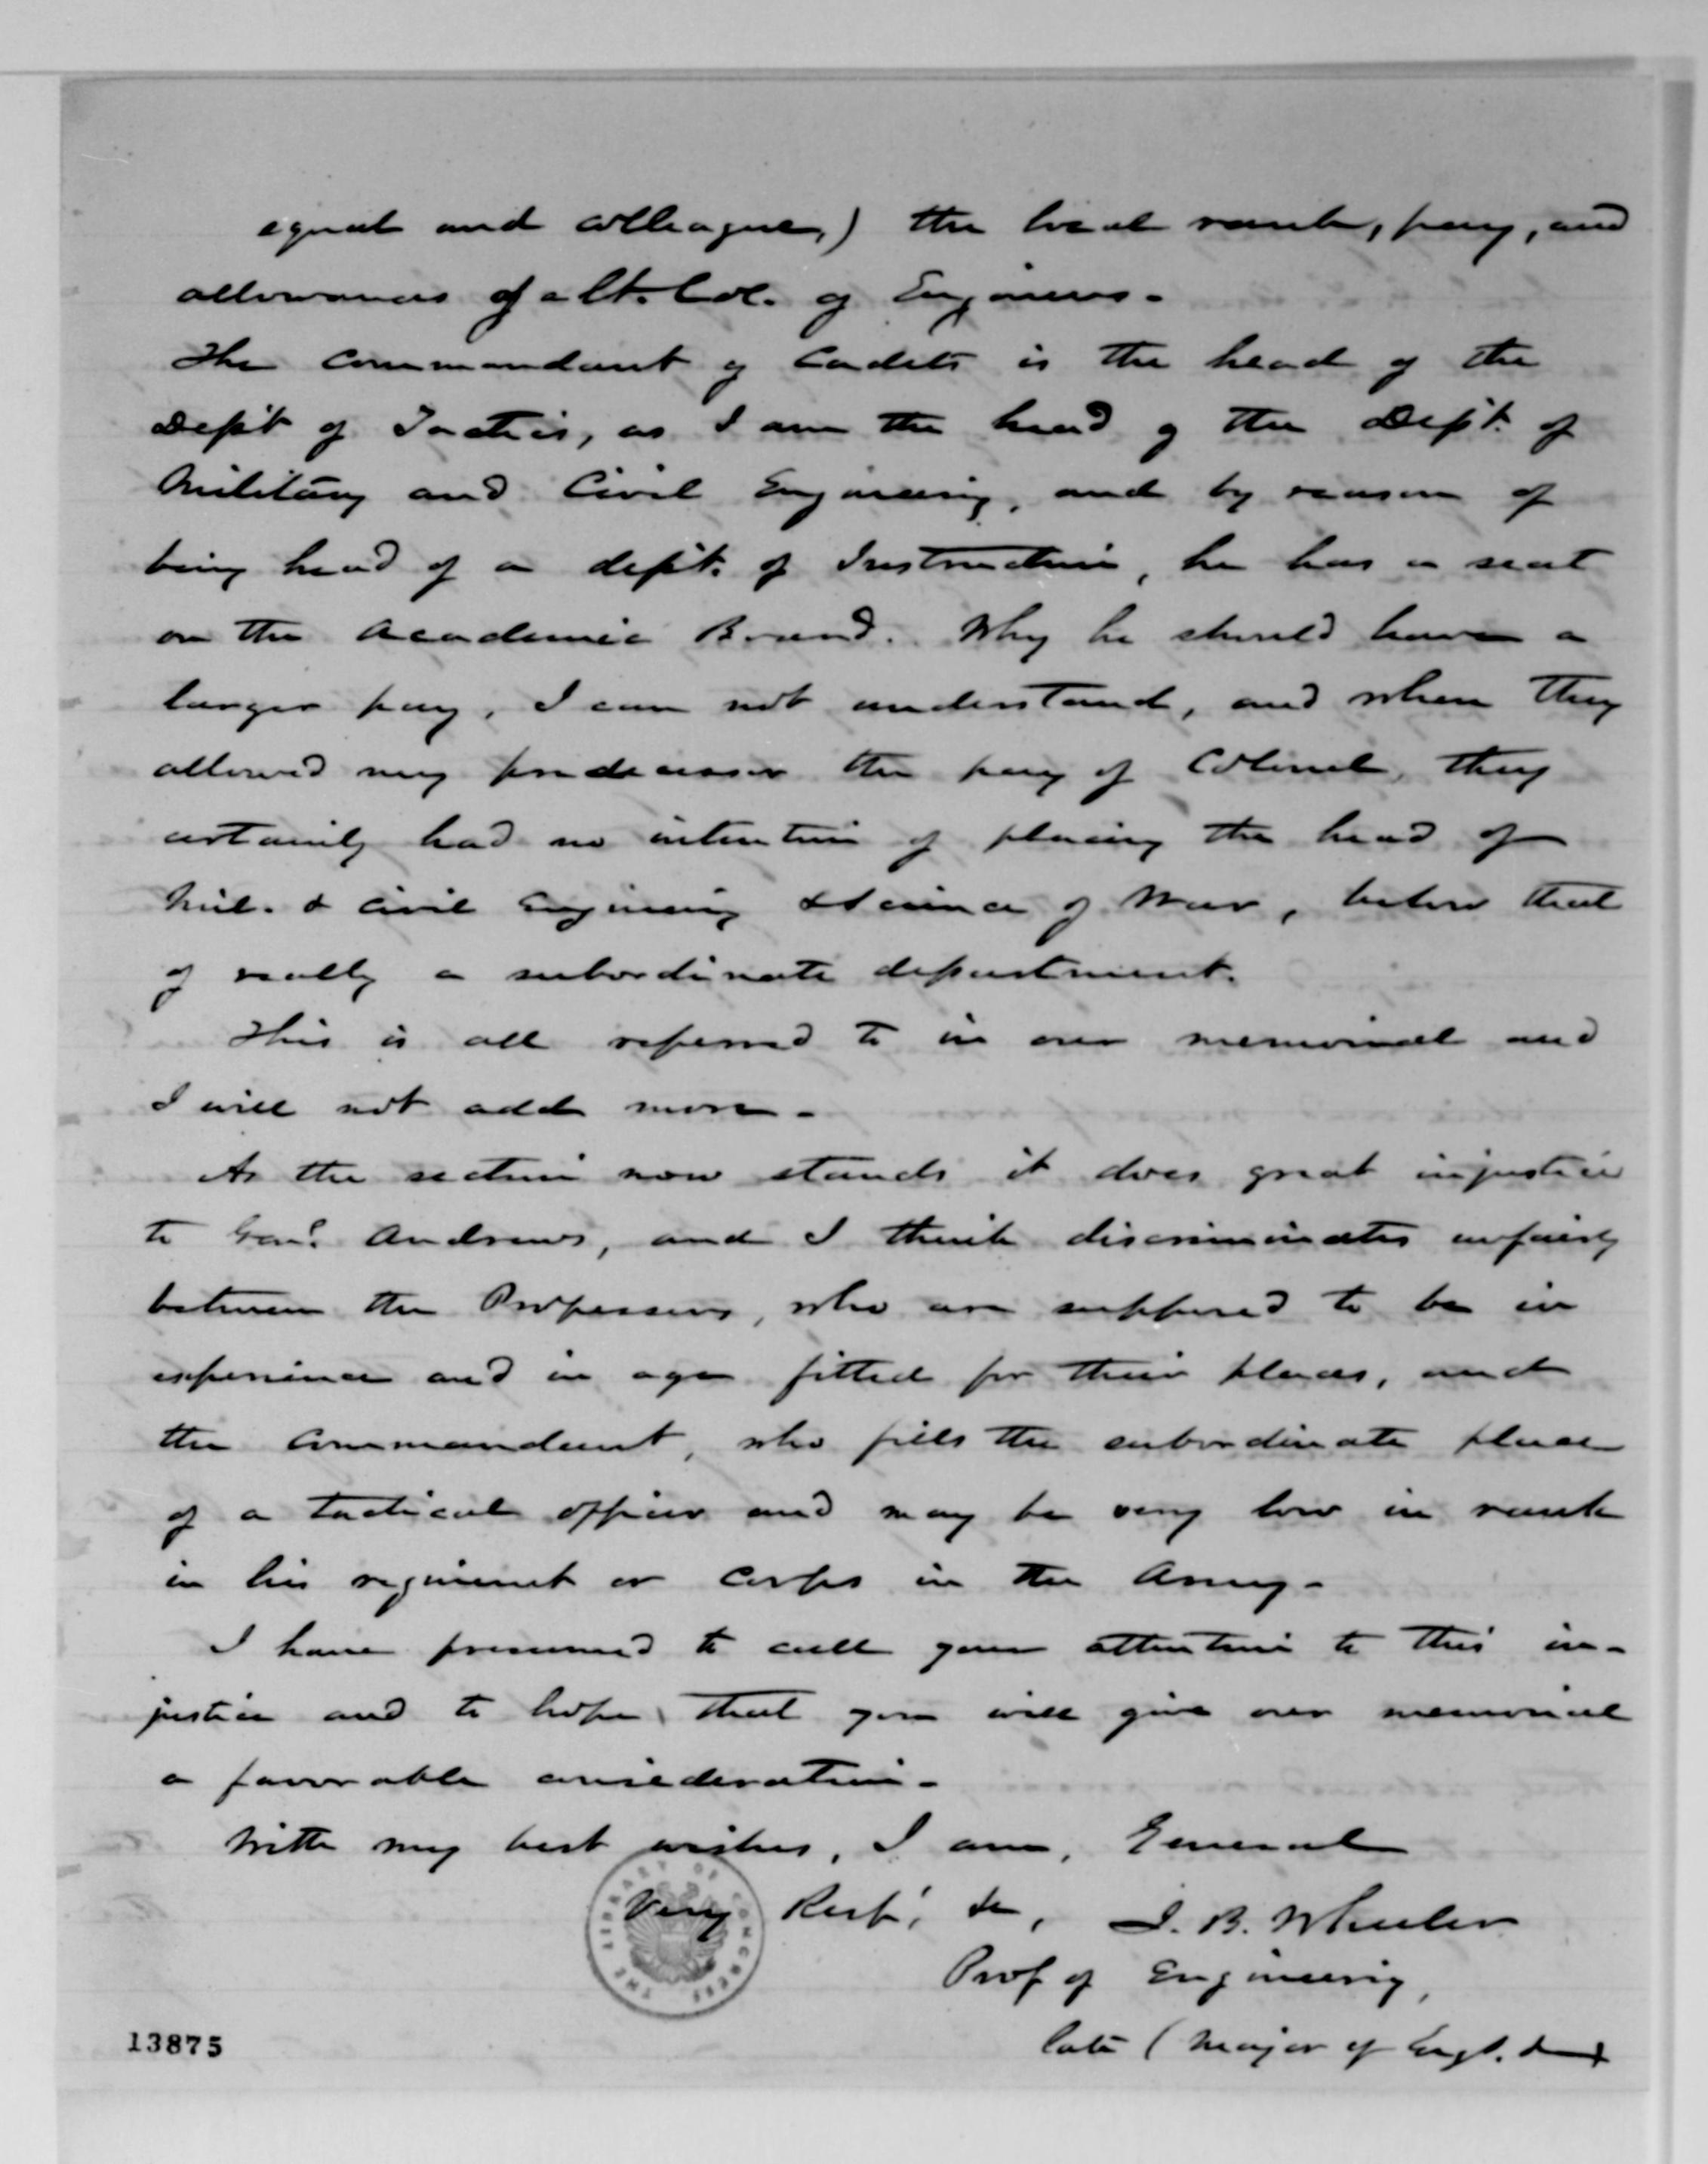 equal and colleague,) the local rank, pay, and
allowances of a Lt. Col. of Engineers.
The Commandant of Cadets is the head of the
Dept of Tactics, as I am the head of the Dept. of
Military and Civil Engineering, and by reason of
being head of a dept. of Instruction, he has a seat
on the Academic Board. Why he should have a
larger pay, I can not understand, and when they
allowed my predecessor the pay of Colonel, they
certainly had no intention of placing the head of
Mil. & Civil Engineering & Science of War, below that
of really a subordinate department.
This is all referred to in our memorial and
I will not add more.
As the section now stands it does great injustice
to Genl. Andrews, and I think discriminates unfairly
between the Professors, who are supposed to be in
experience and in age fitted for their places, and
the Commandant, who fills the subordinate place
of a tactical officer and may be very low in rank
in his regiment or Corps in the Army.
I have presumed to call your attention to this in-
justice and to hope, that you will give our memorial
a favorable consideration.
With my best wishes, I am, General
Very Resp', &c, J. B. Wheeler
Prof of Engineering,
late (Major of Engs.
THE LIBRARY OF CONGRESS
13875